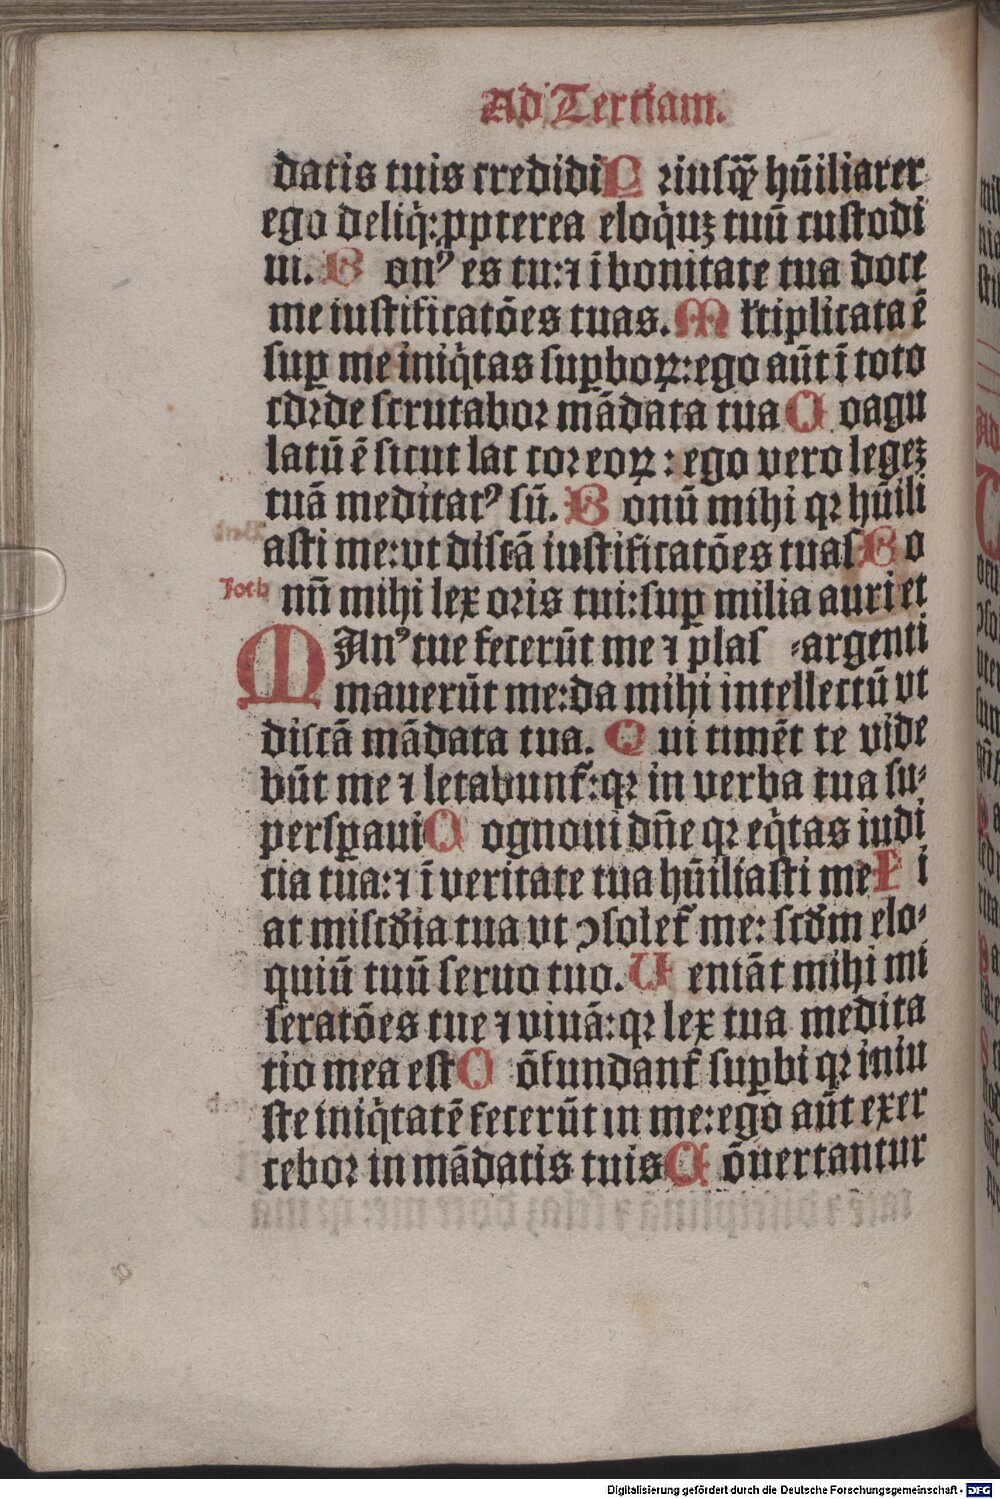 Ad Tertiam.
datis tuis credidi Priusq̃ hũiliarer
ego deliq̃: ꝓpterea eloq̃uꝫ tuũ custodi
ui. Bonꝰ es tu: ⁊ ĩ bonitate tua doce
me iustificatões tuas. Mltiplicata ẽ
suꝑ me iniq̃tas suꝑboꝝ: ego aũt ĩ toto
corde scrutabor mãdata tua Coagu
latũ ẽ sicut lac cor eoꝝ: ego vero legeꝫ
tuã meditatꝰ sũ. Bonũ mihi qꝛ hũili
asti me: vt discã iustificatões tuas Bo
Joth nũ mihi lex oris tui: suꝑ milia auri et
MAnꝰ tue fecerũt me ⁊ plas ⸗argenti
mauerũt me: da mihi intellectũ vt
discã mãdata tua. Qui timẽt te vide
bũt me ⁊ letabunt᷑: qꝛ in verba tua su⸗
persꝑaui Cognoui dñe qꝛ eq̃tas iudi
tia tua: ⁊ ĩ veritate tua hũiliasti me Fi
at miscd̃ia tua vt ↄsolet᷑ me: scd̃m elo⸗
quiũ tuũ seruo tuo. Ueniãt mihi mi
seratões tue ⁊ viuã: qꝛ lex tua medita
tio mea est Cõfundant᷑ suꝑbi qꝛ iniu
ste iniq̃tatẽ fecerũt in me: ego aũt exer
cebor in mãdatis tuis Cõuertantur
Digitalisierung gefördert durch die Deutsche Forschungsgemeinschaft - DFG